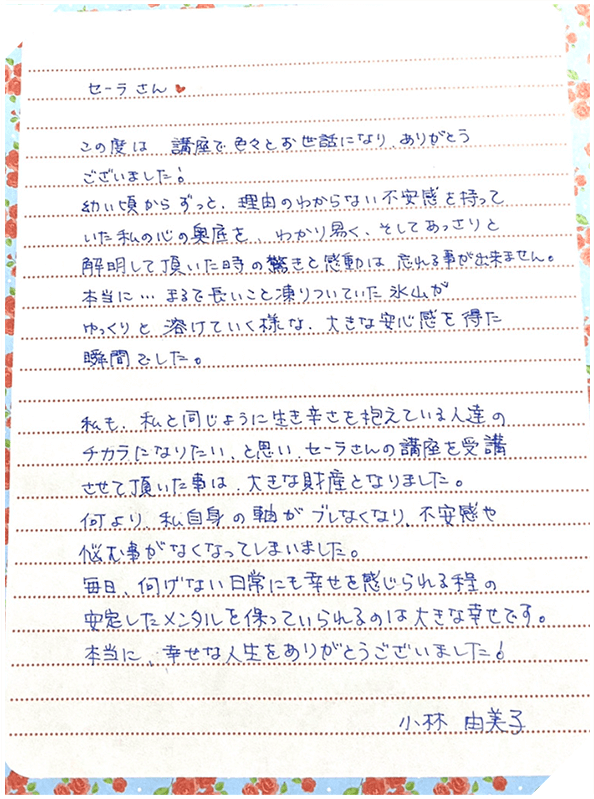 セーラさん♥
この度は 講座で色々とお世話になり、ありがとう
ございました!
幼い頃からずっと、理由のわからない不安感を持って
いた私の心の奥底を、わかり易く、そしてあっさりと
解明して頂いた時の驚きと感動は 忘れる事が出来ません。
本当に… まるで長いこと凍りついていた氷山が
ゆっくりと 溶けていく様な、大きな安心感を得た
瞬間でした。
私も、私と同じように生き辛さを抱えている人達の
チカラになりたい、と思い、セーラさんの講座を受講
させて頂いた事は、大きな財産となりました。
何より、私自身の軸がブレなくなり、不安感や
悩む事がなくなってしまいました。
毎日、何げない日常にも幸せを感じられる程の
安定したメンタルを保っていられるのは大きな幸せです。
本当に、幸せな人生をありがとうございました!
小林 由美子